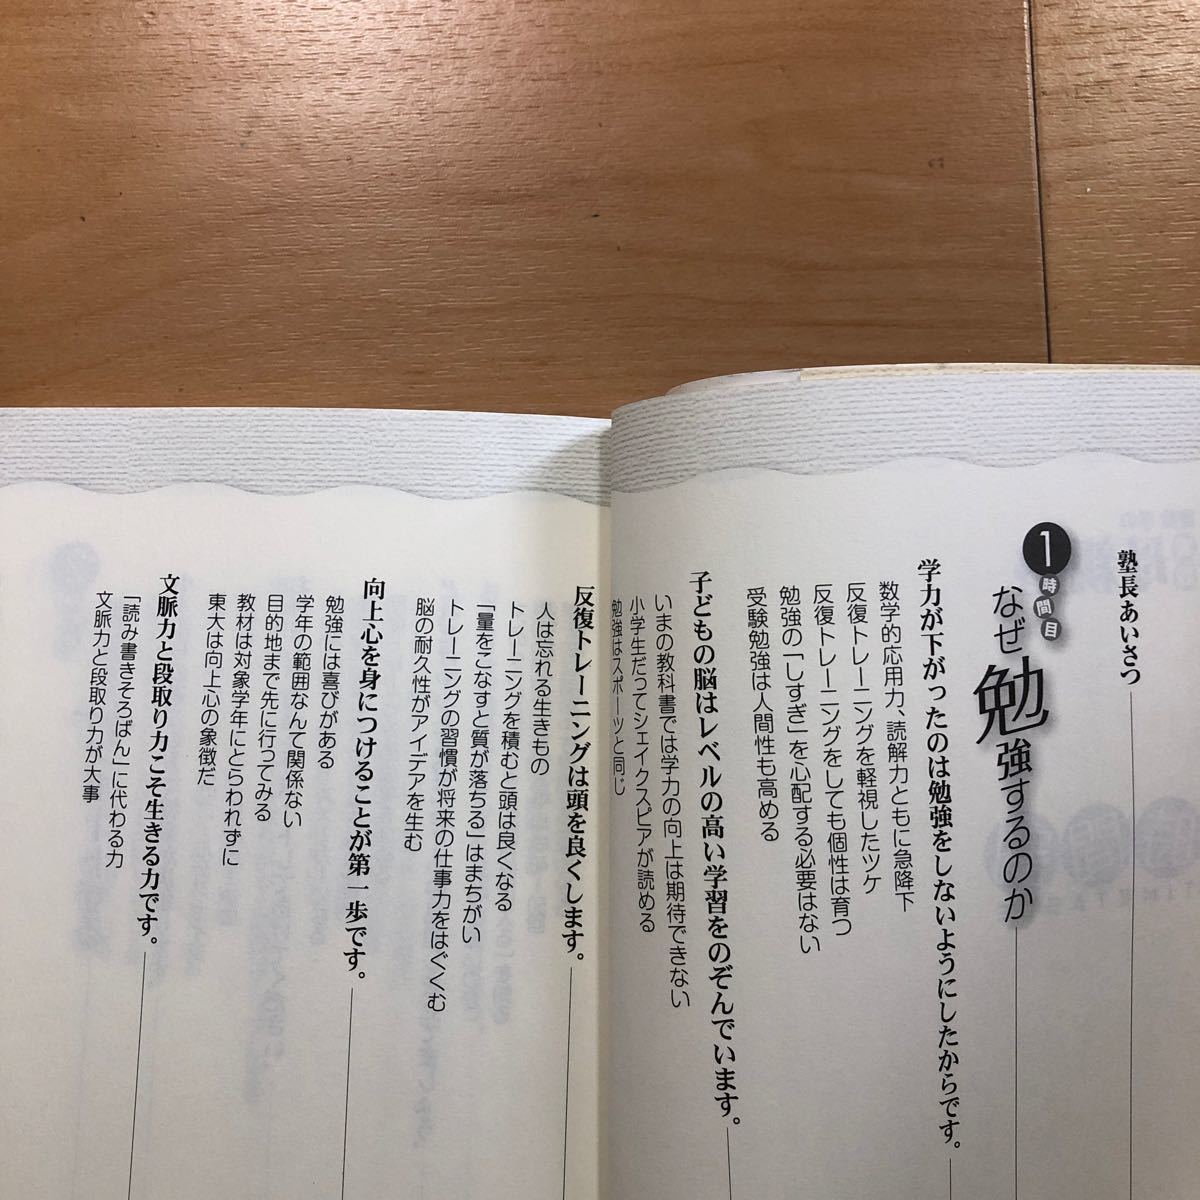 塾長あいさつ
1時間目
なぜ勉強するのか
学力が下がったのは勉強をしないようにしたからです。
数学的応用力、読解力ともに急降下
反復トレーニングを軽視したツケ
反復トレーニングをしても個性は育つ
勉強の「しすぎ」を心配する必要はない
受験勉強は人間性も高める
子どもの脳はレベルの高い学習をのぞんでいます。
いまの教科書では学力の向上は期待できない
小学生だってシェイクスピアが読める
勉強はスポーツと同じ
反復トレーニングは頭を良くします。
人は忘れる生きもの
トレーニングを積むと頭は良くなる
「量をこなすと質が落ちる」はまちがい
トレーニングの習慣が将来の仕事力をはぐくむ
脳の耐久性がアイデアを生む
向上心を身につけることが第一歩です。
勉強には喜びがある
学年の範囲なんて関係ない
目的地まで先に行ってみる
教材は対象学年にとらわれずに
東大は向上心の象徴だ
文脈力と段取り力こそ生きる力です。
「読み書きそろばん」に代わる力
文脈力と段取り力が大事